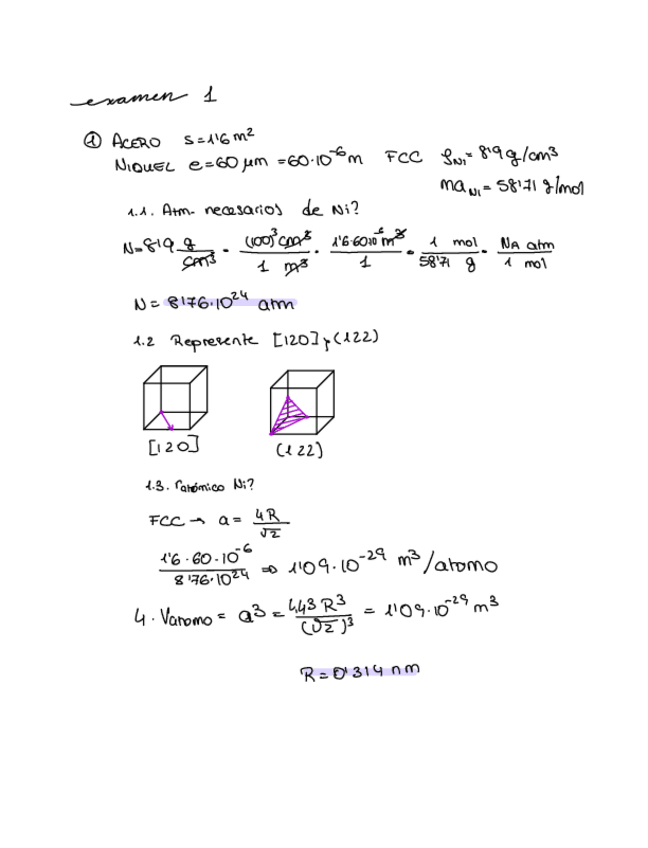 examen 1
① ACERO S=1'6 m²
NIQUEL e=60 μm =60·10⁻⁶m FCC ρNi= 8'9 g/cm³
maNi= 58'71 g/mol
1.1. Atm. necesarios de Ni?
N=8'9 g/cm³ · (100)³cm³/1 m³ · 1'6·60·10⁻⁶ m³/1 · 1 mol/58'71 g · NA atm/1 mol
N= 8'76·10²⁴ atm
1.2 Represente [120] y (122)
[120] (122)
1.3. ratómico Ni?
FCC → a= 4R/√2
1'6·60·10⁻⁶/8'76·10²⁴ ⇒ 1'09·10⁻²⁹ m³/atomo
4·Vatomo= a³ = 4,43 R³/(√2)³ = 1'09·10⁻²⁹ m³
R=0'314 nm